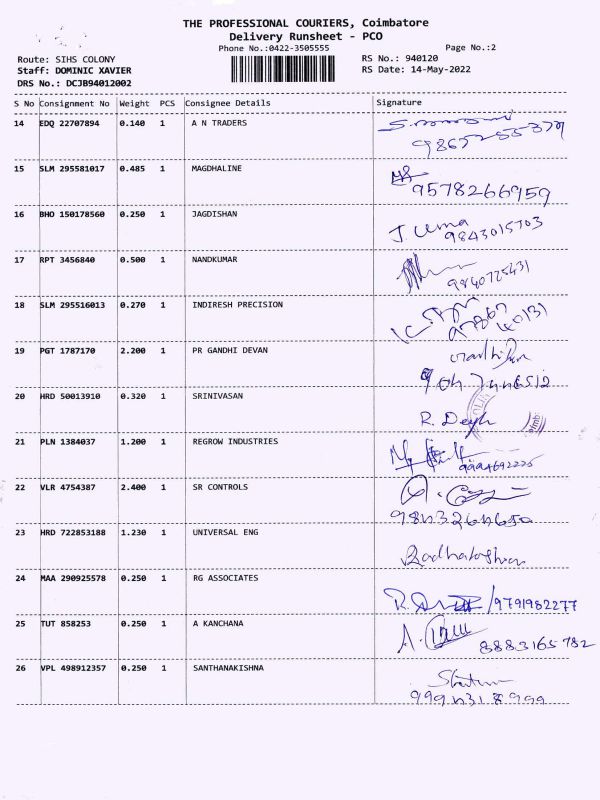 THE PROFESSIONAL COURIERS, Coimbatore
Delivery Runsheet - PCO
Phone No.:0422-3505555
Page No.:2
Route: SIHS COLONY
RS No.: 940120
Staff: DOMINIC XAVIER
RS Date: 14-May-2022
DRS No.: DCJB94012002
S No Consignment No Weight PCS Consignee Details Signature
14 EDQ 22707894 0.140 1 A N TRADERS
15 SLM 295581017 0.485 1 MAGDHALINE
9578266959
16 BHO 150178560 0.250 1 JAGDISHAN
J. Uma
9843015703
17 RPT 3456840 0.500 1 NANDKUMAR
9840725431
18 SLM 295516013 0.270 1 INDIRESH PRECISION
19 PGT 1787170 2.200 1 PR GANDHI DEVAN
20 HRD 50013910 0.320 1 SRINIVASAN
21 PLN 1384037 1.200 1 REGROW INDUSTRIES
22 VLR 4754387 2.400 1 SR CONTROLS
23 HRD 722853188 1.230 1 UNIVERSAL ENG
24 MAA 290925578 0.250 1 RG ASSOCIATES
/9791982277
25 TUT 858253 0.250 1 A KANCHANA
8883165782
26 VPL 498912357 0.250 1 SANTHANAKISHNA